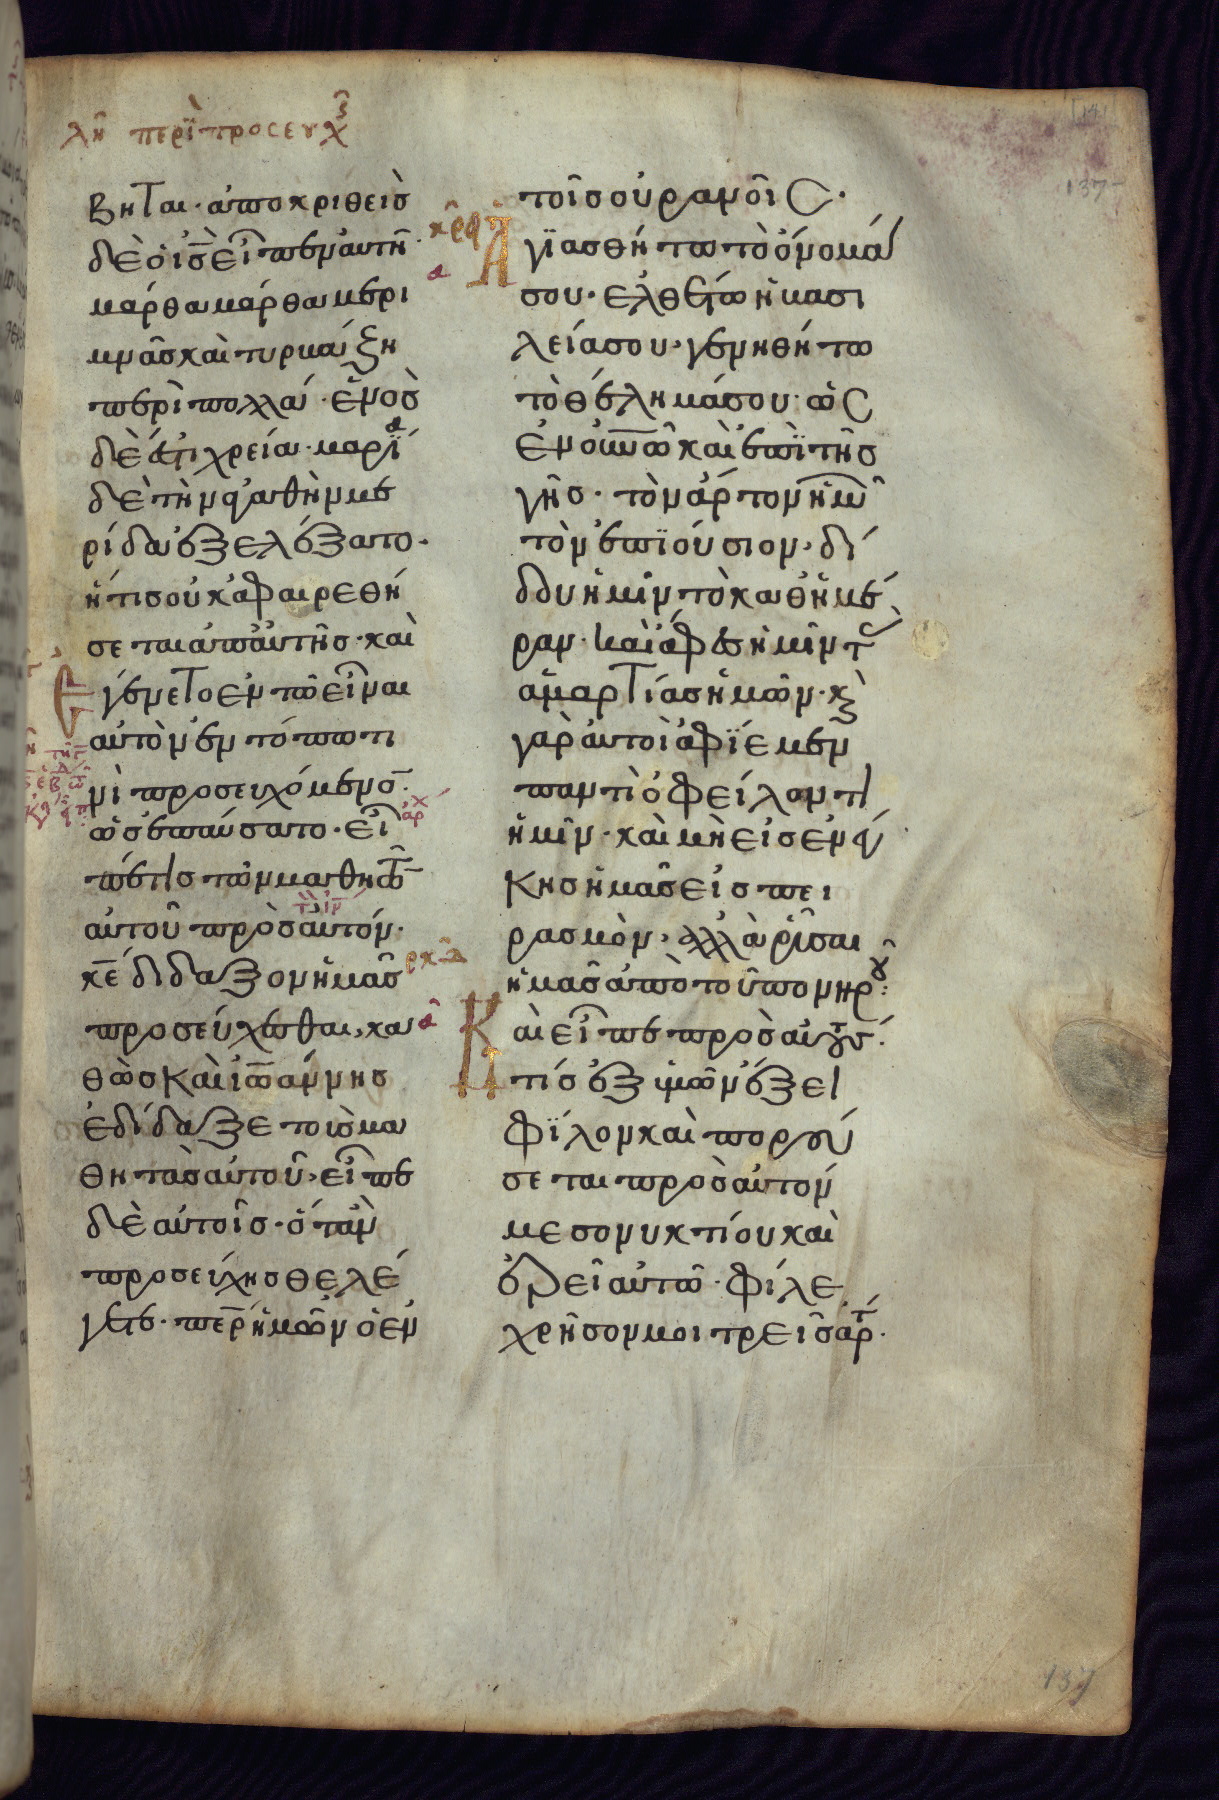 λη περὶ προσευχ
βηται· ἀποκριθεὶσ
δὲ ὁ ισ εἶπεν αὐτῆ·
μάρθα μάρθα μερι
μνᾶσ καὶ τυρβάζη
περὶ πολλά· ἑνὸσ
δέ ἐστι χρεία· μαρία
δὲ τὴν ἀγαθὴν με
ρίδα ἐξελέξατο·
ἥτισ οὐκ ἀφαιρεθή
σεται ἀπ αὐτῆσ· καὶ
ἐγένετο ἐν τῶ εἶναι
αὐτὸν ἐν τόπω τι
νὶ προσευχόμενον·
ὡσ ἐπαύσατο· εἶπέ
τισ τῶν μαθητῶν
αὐτοῦ πρὸσ αὐτόν·
κε δίδαξον ἡμᾶσ
προσεύχεσθαι, κα
θὼσ καὶ ἰωάννησ
ἐδίδαξε τοὺσ μα
θητὰσ αὐτοῦ· εἶπε
δὲ αὐτοῖσ· ὅταν
προσεύχησθε λέ
γετε· περ ἡμῶν ὁ ἐν
τοῖσ οὐρανοῖσ·
Ἁγϊασθήτω τὸ ὄνομά
σου· ἐλθέτω ἡ βασι
λεία σου· γενηθήτω
τὸ θέλημά σου· ὡσ
ἐν οὐνῶ καὶ ἐπὶ τῆσ
γῆσ· τὸν ἄρτον ἡμῶ
τὸν ἐπϊούσιον· δί
δου ἡμῖν τὸ καθἡμέ
ραν· καὶ ἄφεσ ἡμῖν τὰσ
ἁμαρτίασ ἡμῶν· κὶ
γὰρ αὐτοὶ ἀφΐεμεν
παντὶ ὀφείλοντι
ἡμῖν· καὶ μὴ εἰσενέγ
κησ ἡμᾶσ εἰσ πει
ρασμὸν· ἀλλὰ ῥῦσαι
ἡμᾶσ ἀπὸ τοῦ πονηροῦ:
Καὶ εἶπε πρὸσ αὐτούσ·
τίσ ἐξ ὑμῶν ἕξει
φΐλον καὶ πορεύ
σεται πρὸσ αὐτὸν
μεσονυκτίου καὶ
ἐρεῖ αὐτῶ· φίλε
χρῆσον μοι τρεῖσ ἄρτ·
137
137